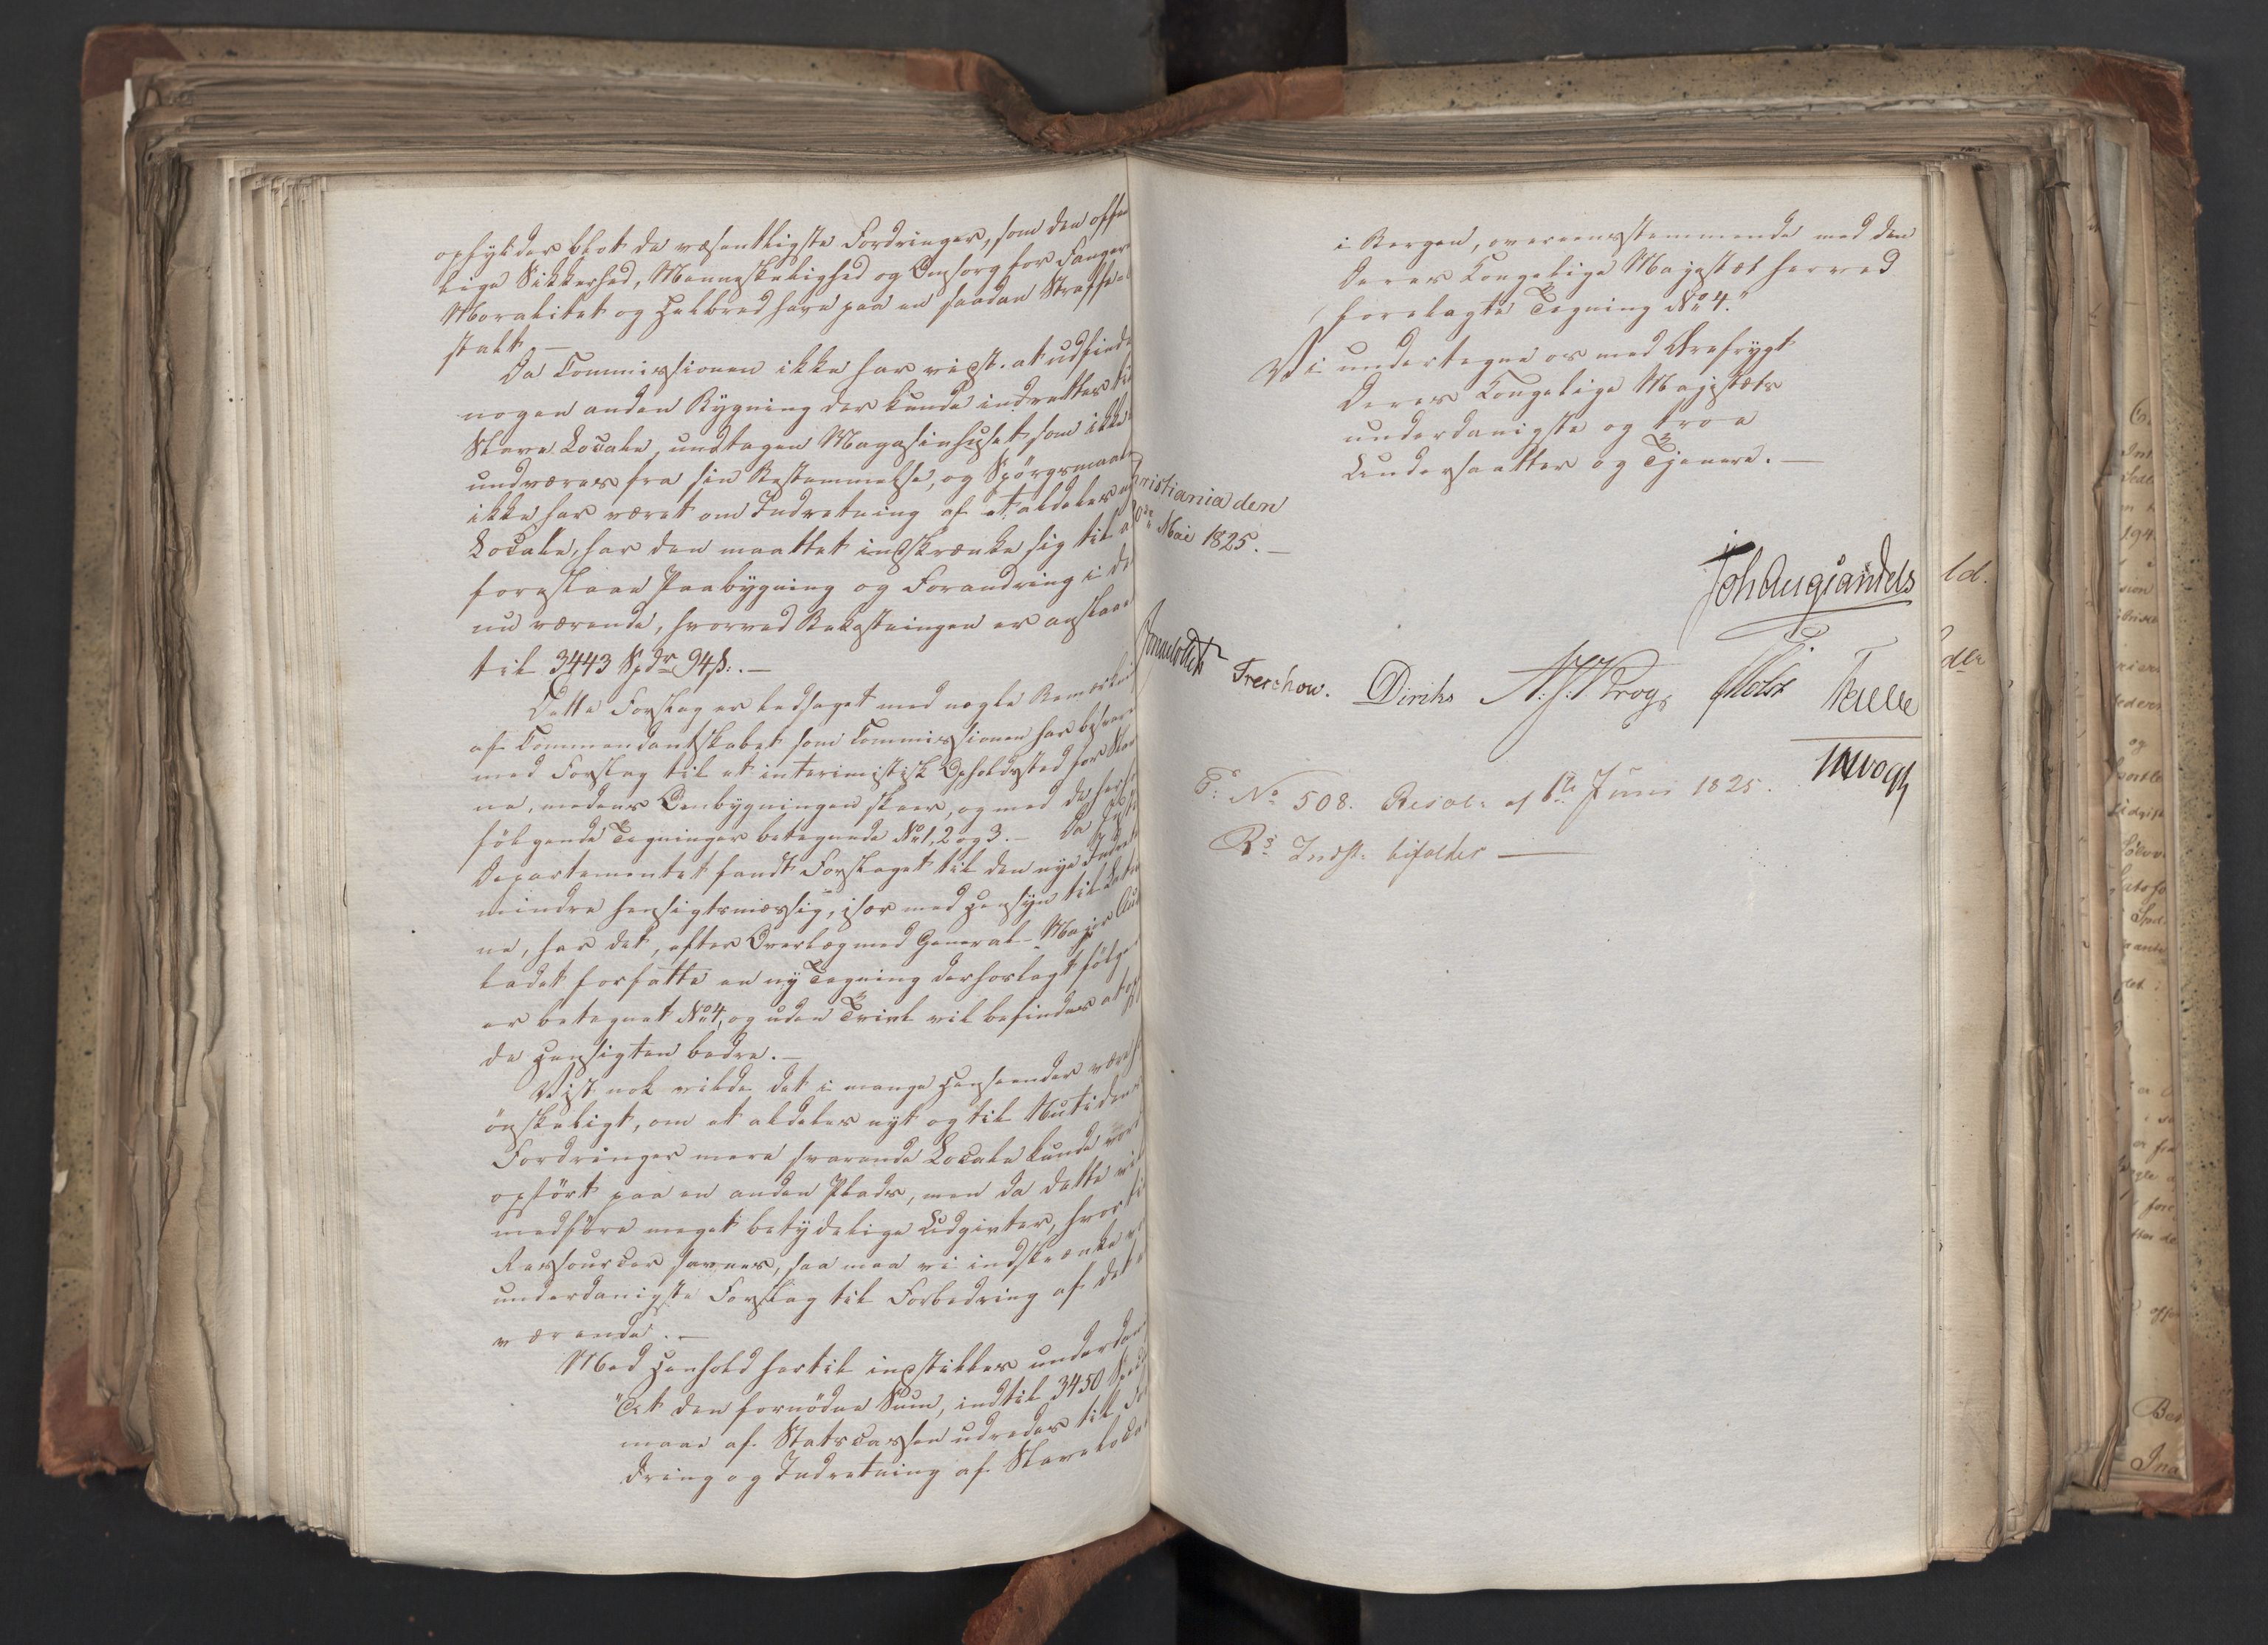 opfylder blot de væsentligste Fordringer, som den offent
lige Sikkerhed, Menneskelighed og Omsorg for Fangers
Moralitet og Helbred have paa en saadan Straffean
stalt. —
Da Commissionen ikke har vidst at udfinde
nogen anden Bygning der kunde indrettes til
Slave Locale, undtagen Magasinhuset, som ikke
undværes fra sin Bestemmelse, og Spörgsmaalet
ikke har været om Indretning af et aldeles nyt
Locale, har den maattet indskrænke sig til at
foreslaae Paabygning og Forandring i det
nu værende, hvorved Bekostningen er anslaaet
til 3443 Spdr 94 ß. —
Dette Forslag er ledsaget med nogle Bemærkn
af Commandantskabet som Commissionen har besvaret
med Forslag til et interimistisk Opholdssted for Slaver
ne, medens Ombygningen skeer, og med de her
fölgende Tegninger betegnede No 1, 2 og 3. — Da Justits
Departementet fandt Forslaget til den nye Indretn
mindre hensigtsmæssig, især med Hensyn til
ne, har det, efter Overlæg med General-Major
ladet forfatte en ny Tegning der hoslagt fölger
er betegnet No 4, og uden Tvivl vil befindes at op
de Hensigten bedre. —
Vist nok vilde det i mange Henseender være
önskeligt, om et aldeles nyt og til Nutidens
Fordringer mere svarende Locale kunde vorde
opfört paa en anden Plads, men da dette vil
medföre meget betydelige Udgivter, hvortil
Ressourcer savnes, saa maa vi indskrænke
underdanigste Forslag til Forbedring af det
værende. —
Med Henhold hertil indstilles underdan
"At den fornödne Sum, indtil 3450 Spd
maae af Statscassen udredes til
dring og Indretning af Slavelocal
i Bergen, overeensstemmende med den
Deres Kongelige Majestæt herved
forelagte Tegning No 4."
Vi undertegne os med Ærefrygt
Deres Kongelige Majestæts
underdanigste og troe
Undersaatter og Tjenere. —
Christiania den
Mai 1825. —
Joh Aug Sandels
Sommerhielm Treschow. Diriks A. S. Krog Motzfeldt Fasting
JHVogt
F: No 508. Resol: af 6te Juni 1825.
Rs Indst: bifaldes —